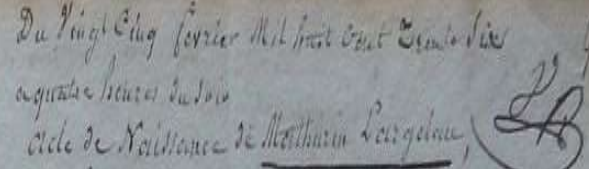 Du Vingt Cinq février Mil huit cent Trente Six
a quatre heures du soir
acte de Naissance de Mathurin Largeteau,